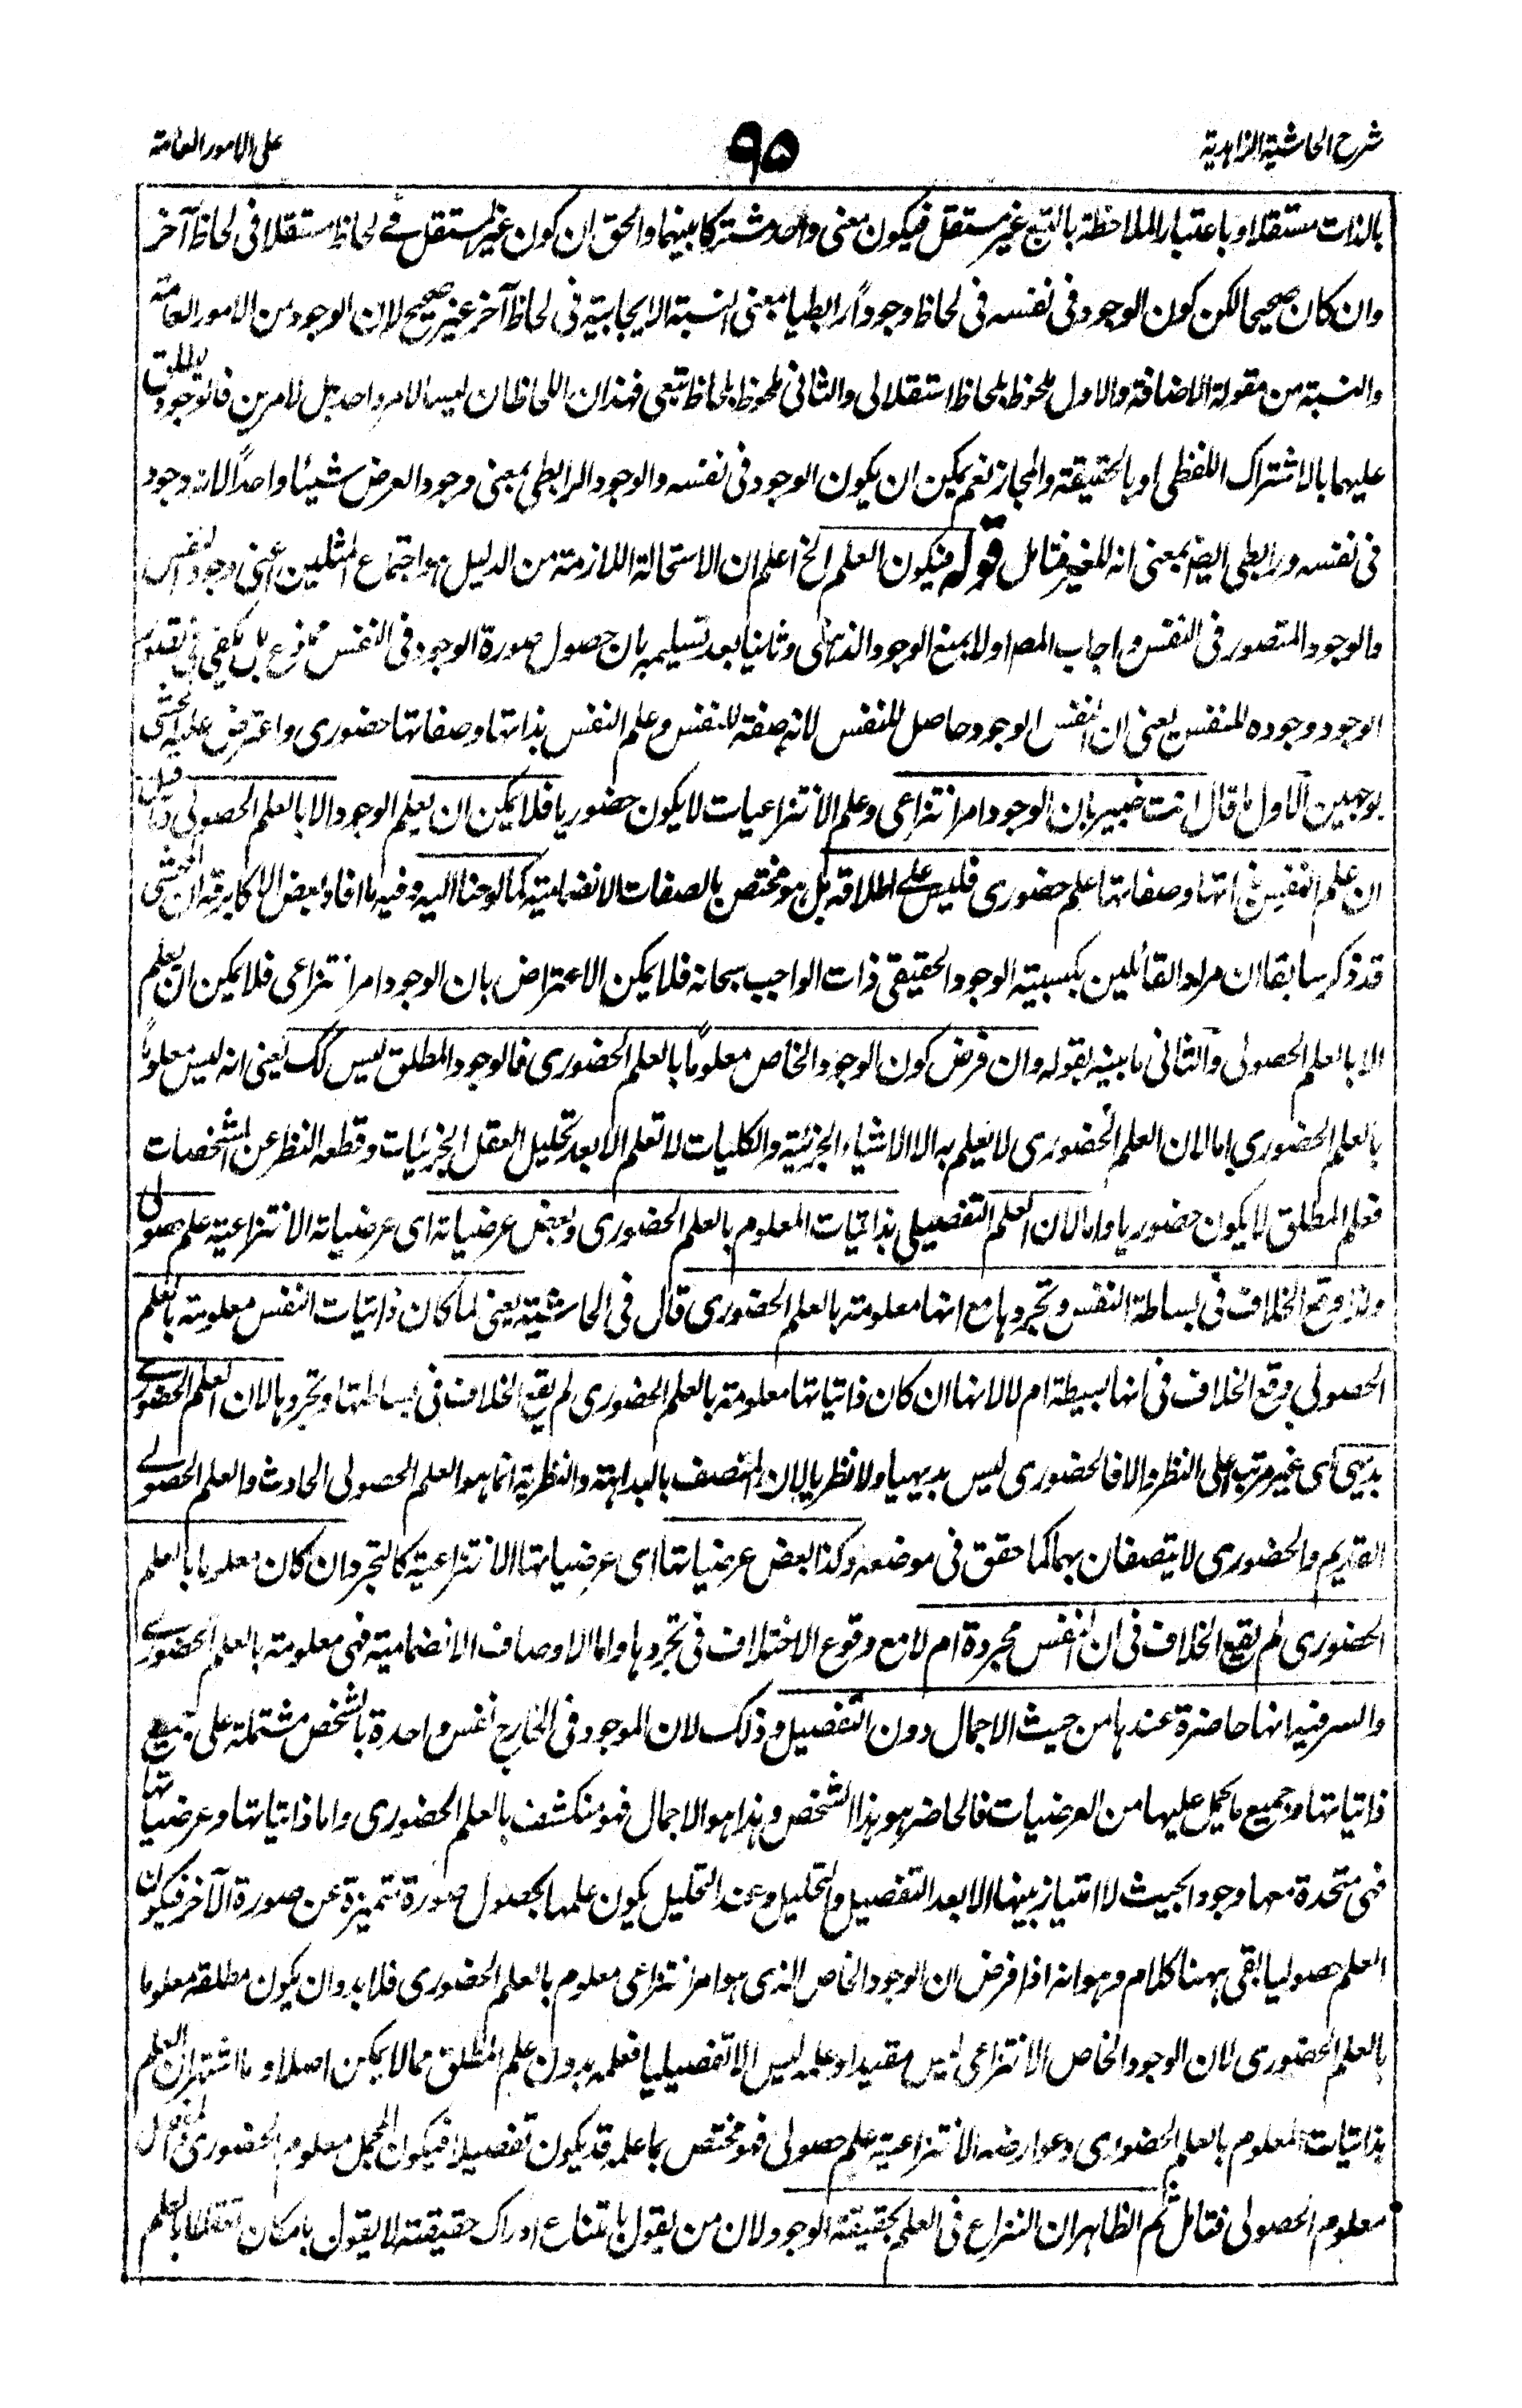 شرح الحاشية الزاهدية
٩٥
على الامور العامة
بالذات مستقلا وباعتبار الملاحظة بالتبع غير مستقل فيكون معنى واحد مشتركا بينهما والحق ان كون غير المستقل في لحاظ مستقلا في لحاظ آخر
وان كان صحيحا لكن كون الوجود في نفسه في لحاظ وجوداً رابطيا بمعنى النسبة الايجابية في لحاظ آخر غير صحيح لان الوجود من الامور العامة
والنسبة من مقولة الاضافة والاول ملحوظ بلحاظ استقلالي والثاني ملحوظ بلحاظ تبعي فهذان اللحاظان ليسا لامر واحد بل لامرين فالوجود يطلق
عليهما بالاشتراك اللفظي او بالحقيقة والمجاز نعم يمكن ان يكون الوجود في نفسه والوجود الرابطي بمعنى وجود العرض شيئا واحداً لانه وجود
في نفسه ورابطي ايضا بمعنى انه للغير فتامل قوله فيكون العلم الخ اعلم ان الاستحالة اللازمة من الدليل هو اجتماع المثلين اعني وجود النفس
والوجود المتصور في النفس واجاب المص اولا بمنع الوجود الذهني وثانيا بعد تسليمه بان حصول صورة الوجود في النفس ممنوع بل يكفي في تصور
الوجود وجوده للنفس يعني ان نفس الوجود حاصل للنفس لانه صفة للنفس وعلم النفس بذاتها وصفاتها حضوري واعترض عليه المحشي
بوجهين الاول ما قال انت خبير بان الوجود امر انتزاعي وعلم الانتزاعيات لا يكون حضوريا فلا يمكن ان يعلم الوجود الا بالعلم الحصولي وما قيل
ان علم النفس بذاتها وصفاتها علم حضوري فليس على اطلاقه بل هو مختص بالصفات الانضمامية كما لوحنا اليه وفيه ما افاد بعض الاكابر قه ان المحشي
قد ذكر سابقا ان مراد القائلين بكسبية الوجود الحقيقي ذات الواجب سبحانه فلا يمكن الاعتراض بان الوجود امر انتزاعي فلا يمكن ان يعلم
الا بالعلم الحصولي والثاني ما بينه بقوله وان فرض كون الوجود الخاص معلوماً بالعلم الحضوري فالوجود المطلق ليس كك يعني انه ليس معلوماً
بالعلم الحضوري اما لان العلم الحضوري لا يعلم به الا الاشياء الجزئية والكليات لا تعلم الا بعد تحليل العقل الجزئيات وقطعه النظر عن المشخصات
فعلم المطلق لا يكون حضوريا واما لان العلم التفصيلي بذاتيات المعلوم بالعلم الحضوري وبعض عرضياته اى عرضياته الانتزاعية علم حصولي
ولذا وقع الخلاف في بساطة النفس وتجردها مع انها معلومة بالعلم الحضوري قال في الحاشية يعني لما كان ذاتيات النفس معلومة بالعلم
الحصولي وقع الخلاف في انها بسيطة ام لا لانها ان كان ذاتياتها معلومة بالعلم الحضوري لم يقع الخلاف في بساطتها وتجردها لان العلم الحضوري
بديهي اى غير مرتب على النظر والا فالحضوري ليس بديهيا ولا نظريا لان المتصف بالبداهة والنظرية انما هو العلم الحصولي الحادث والعلم الحصولي
القديم والحضوري لا يتصفان بهما كما حقق في موضعه وكذا بعض عرضياتها اى عرضياتها الانتزاعية كالتجرد ان كان معلوما بالعلم
الحضوري لم يقع الخلاف في ان النفس مجردة ام لا مع وقوع الاختلاف في تجردها واما الاوصاف الانضمامية فهي معلومة بالعلم الحضوري
والسر فيه انها حاضرة عندها من حيث الاجمال دون التفصيل وذلك لان الموجود في الخارج نفس واحدة بالشخص مشتملة على جميع
ذاتياتها وجميع ما يحمل عليها من العرضيات فالحاضر هو هذا الشخص وهذا هو الاجمال فهو منكشف بالعلم الحضوري واما ذاتياتها وعرضياتها
فهي متحدة معها وجودا بحيث لا امتياز بينها الا بعد التفصيل والتحليل وعند التحليل يكون علمها بحصول صورة متميزة عن صورة الآخر فيكون
العلم حصوليا بقي ههنا كلام وهو انه اذا فرض ان الوجود الخاص الذي هو امر انتزاعي معلوم بالعلم الحضوري فلا بد وان يكون مطلقه معلوما
بالعلم الحضوري لان الوجود الخاص الانتزاعي ليس مقيدا وعلمه ليس الا تفصيليا فعلمه بدون علم المطلق مما لا يمكن اصلا وما اشتهر ان العلم
بذاتيات المعلوم بالعلم الحضوري وعوارضه الانتزاعية علم حصولي فهو مختص بما علمه قد يكون تفصيلا فيكون المجمل معلوم الحضوري والمفصل
معلوم الحصولي فتامل ثم الظاهر ان النزاع في العلم بحقيقة الوجود لان من يقول بامتناع ادراك حقيقته لا يقول بامكان تعقلها بالعلم